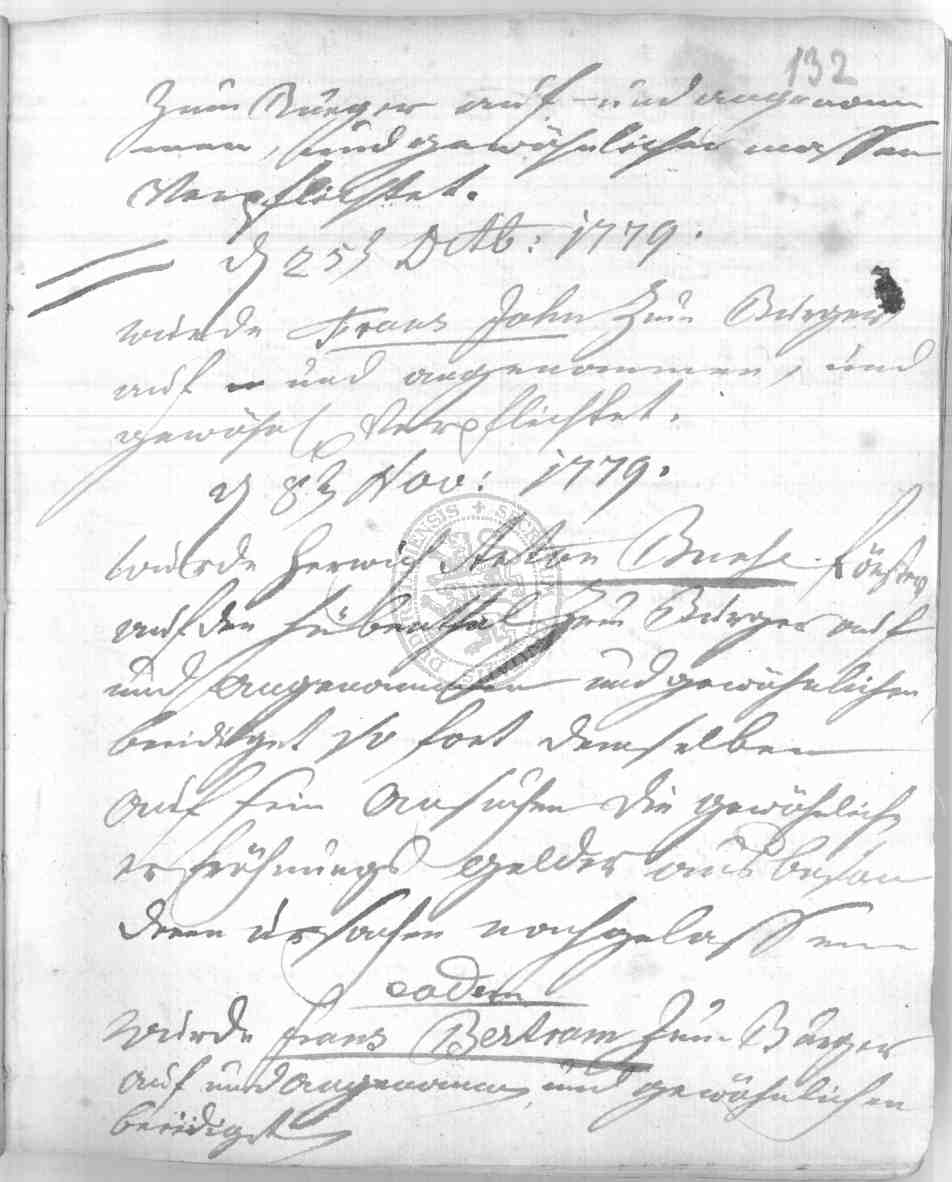 132
zum Bürger auf- und angenom
men, und gewöhnlicher massen
Verpflichtet.
d 25t Octb: 1779.
wurde Frans John zum Bürger
auf - und angenommen, und
gewöhnl Verpflichtet.
d 8t Nov: 1779.
wurde Anton Buese Förster
auf den Hübenthal zum Bürger auf
und angenommen und gewöhnlichen
beeidiget so fort demselben
auf sein Ansuchen die gewöhnliche
gelder aus beson
deren ursachen nachgelassen
eodem
wurde Frans Bertram zum Bürger
auf und angenommen und gewöhnlichen
beeidiget